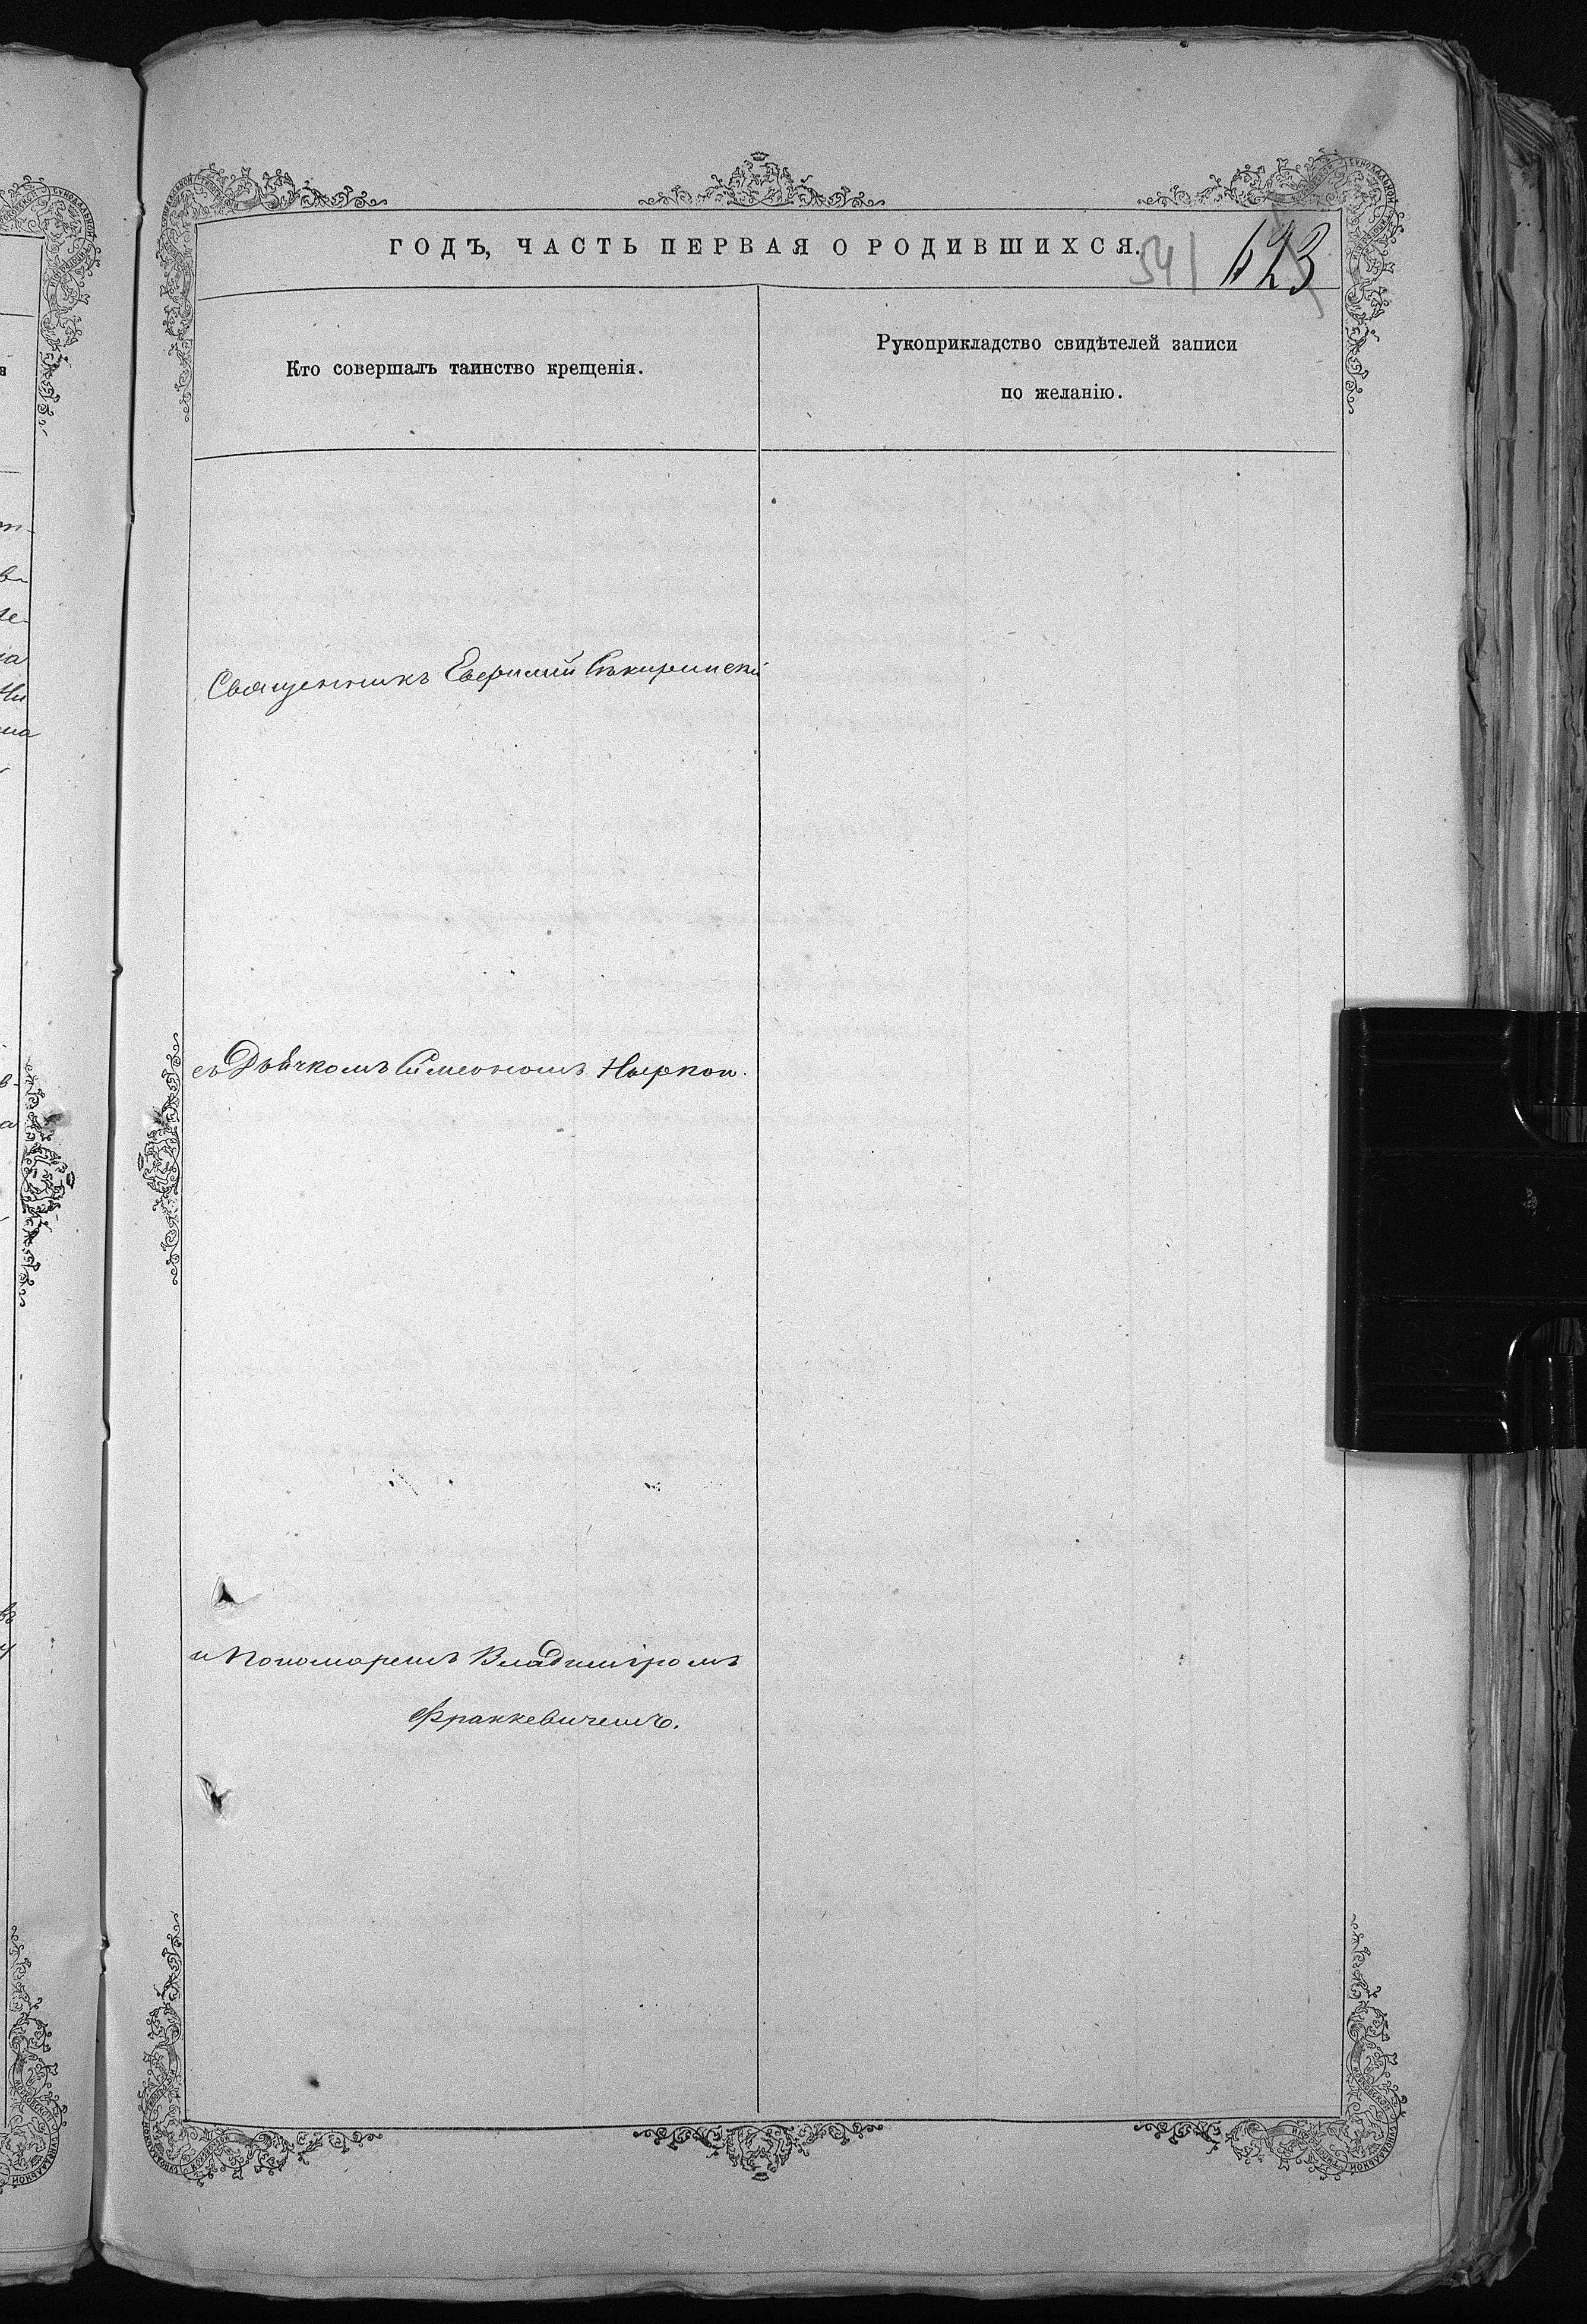 ГОДЪ, ЧАСТЬ ПЕРВАЯ О РОДИВШИХСЯ.
541 623
Кто совершалъ таинство крещенія.
Рукоприкладство свидѣтелей записи
по желанію.
Священникъ Евфимій
съ Дьячкомъ Симеономъ
и Пономаремъ Владиміромъ
Франкевичемъ.